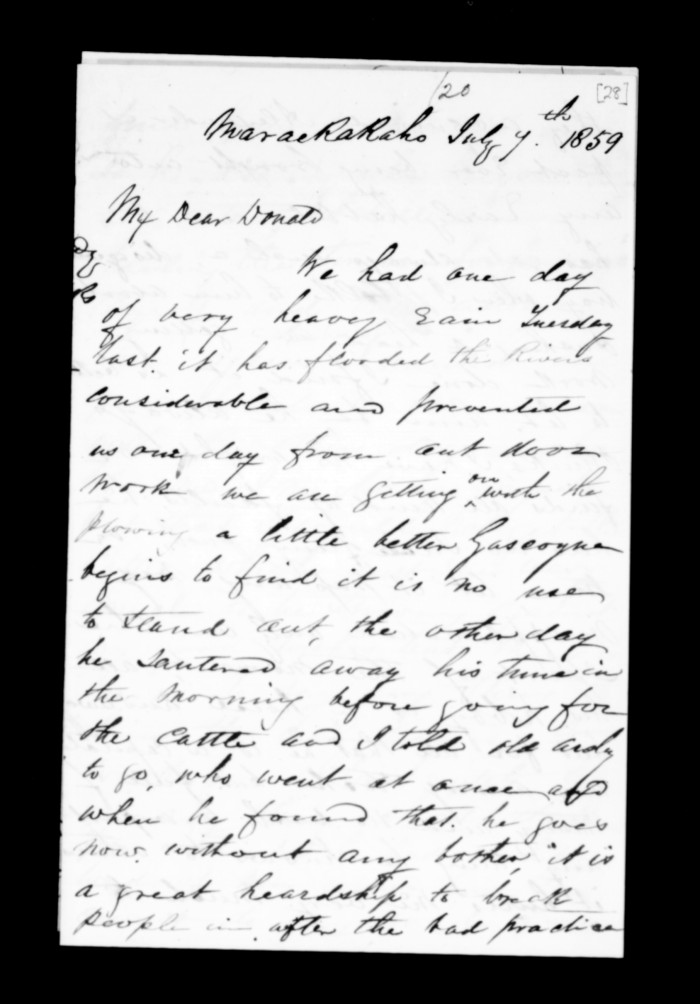 20 [28]
Maraekakaho July 7.th 1859
My Dear Donald
We had one day
of very heavy Rain Tuesday
last. it has flooded the Rivers
considerable and prevented
us one day from out door
work we are getting on with the
plowing a little better Gascoyne
begins to find it is no use
to stand out, the other day
he santered away his time in
the morning before going for
the cattle and I told old andy
to go, who went at once and
when he found that. he goes
now. without any bother, it is
a great heardship to break
people in after the bad practice